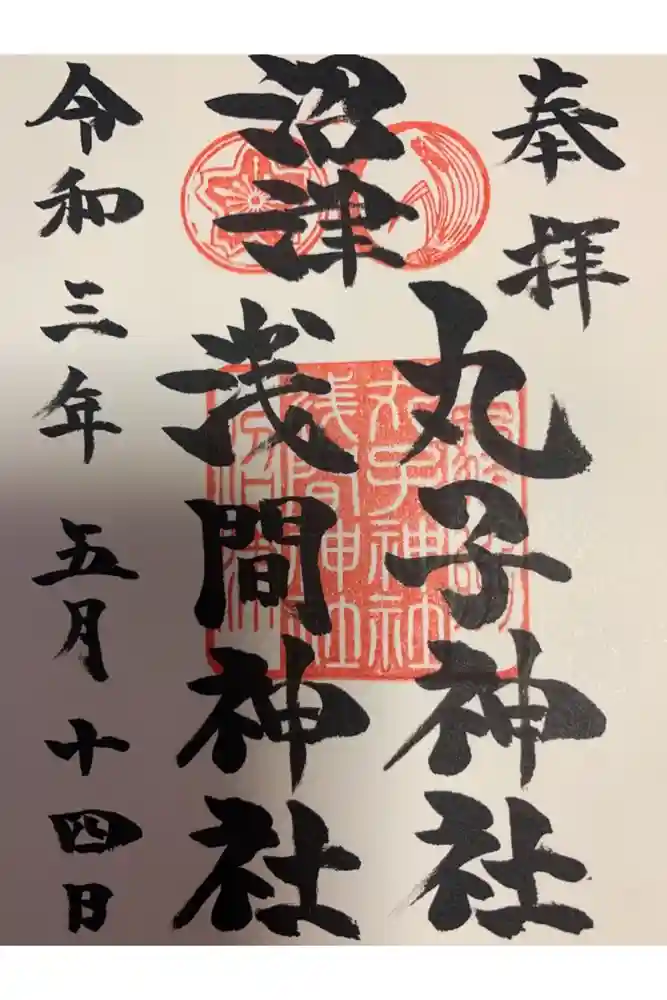 奉拝
沼津
丸子神社
浅間神社
令和三年五月十四日